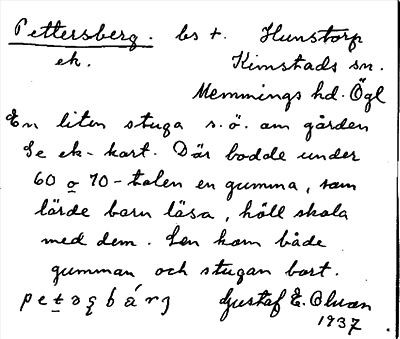 Pettersberg. bs t. Hunstorp
ek. Kimstads sn.
Memmings hd. Ögl
En liten stuga s.ö. om gården
Se ek-kart. Där bodde under
60 o 70-talen en gumma, som
lärde barn läsa, höll skola
med dem. Sen kom både
gumman och stugan bort.
Gustaf E. 
1937